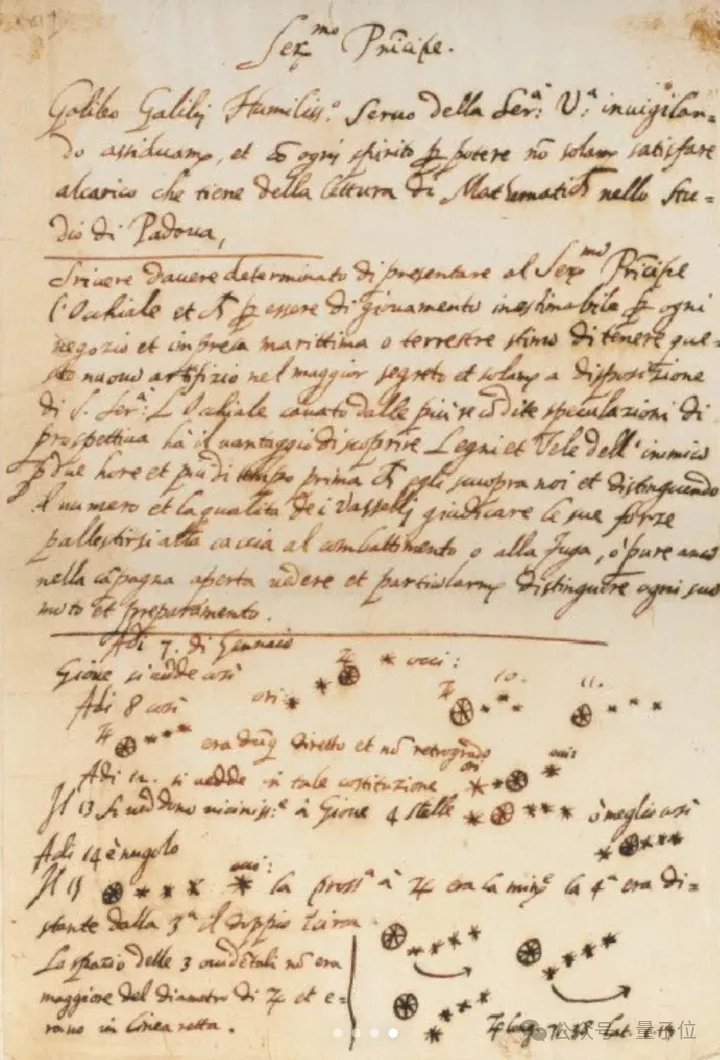 Ser.mo Prīcipe.
Galileo Galilej Humiliss.o Servo della Ser.a V.a invigilan=
do assiduam.te, et cō ogni spirito p potere nō solam.te satisfare
al carico che tiene della lettura di Mathematich nello Stu=
dio di Padova,
Scrivere d'avere determinato di presentare al Ser.mo Prīcipe
l'Occhiale et ch p essere di giovamento inestimabile p ogni
negozio et impresa marittima o terrestre stimo di tenere que=
sto nuovo artifizio nel maggior segreto et solam.te a disposizione
di S. Ser.a L'Occhiale cavato dalle più recōdite speculazioni di
prospettiva hà il vantaggio di scoprire Legni et Vele dell'inimico
p due hore et più di tempo prima ch egli scuopra noi et distinguendo
il numero et la qualità de i Vasselli giudicare le sue forze
pallestirsi alla caccia al combattimento o alla fuga, ò pure anco
nella cāpagna aperta vedere et particolarm.te distinguere ogni suo
moto et preparamento.
Adi 7. di Gennaio
Giove si vedde così occi:
Adi 8 così ori: 10. 11.
era dūq diretto et nō retrogrado
Adi 12. si vedde in tale costituzione ori occi
Il 13 si veddono vicinis.e à Giove 4 stelle ò meglio così
Adi 14 è nugolo
Il 15 occi: la pross.a à ♃ era la min.e la 4.a era di=
stante dalla 3.a il doppio incirca
Lo spazio delle 3 occidētali nō era
maggiore del diametro di ♃ et e=
rano in linea retta.
♃ long. 71.38 lat.
公众号·量子位